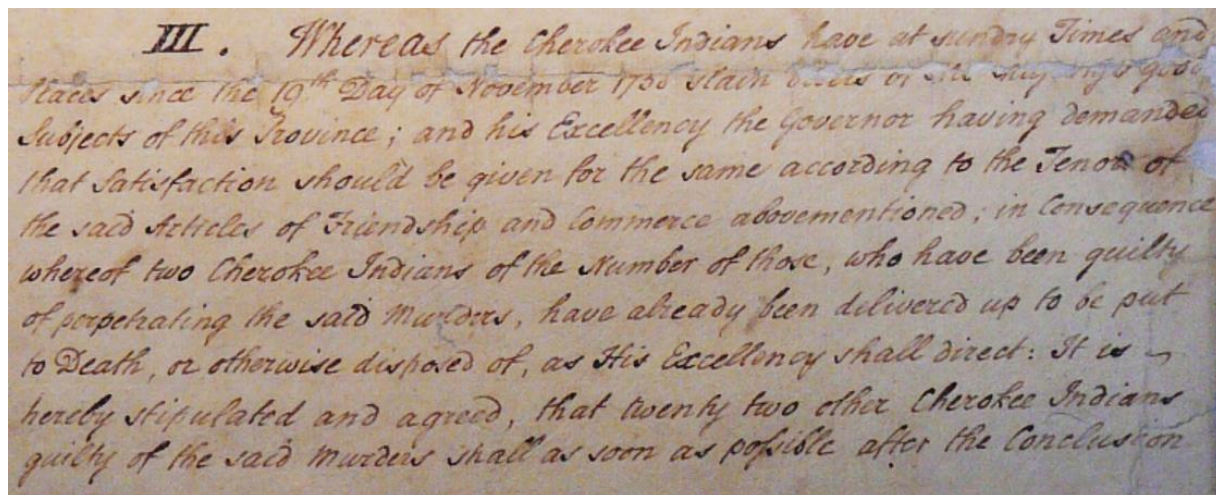 III. Whereas the Cherokee Indians have at sundry Times and
Places since the 19th Day of November 1758 slain divers of His Majesty's good
Subjects of this Province; and his Excellency the Governor having demanded
that Satisfaction should be given for the same according to the Tenor of
the said Articles of Friendship and Commerce abovementioned; in Consequence
whereof two Cherokee Indians of the Number of those, who have been guilty
of perpetrating the said Murders, have already been delivered up to be put
to Death, or otherwise disposed of, as His Excellency shall direct: It is
hereby stipulated and agreed, that twenty two other Cherokee Indians
guilty of the said Murders shall as soon as possible after the Conclusion